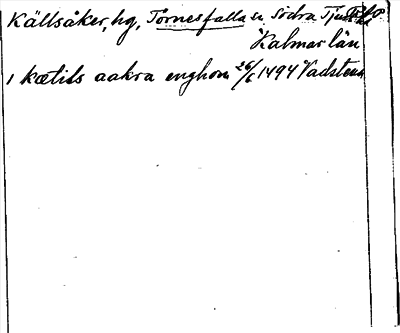 Källsåker, hg, Törnesfalla sn, Södra Tjust
Kalmar län
i kætils aakra enghom 26/6 1494 Vadstena